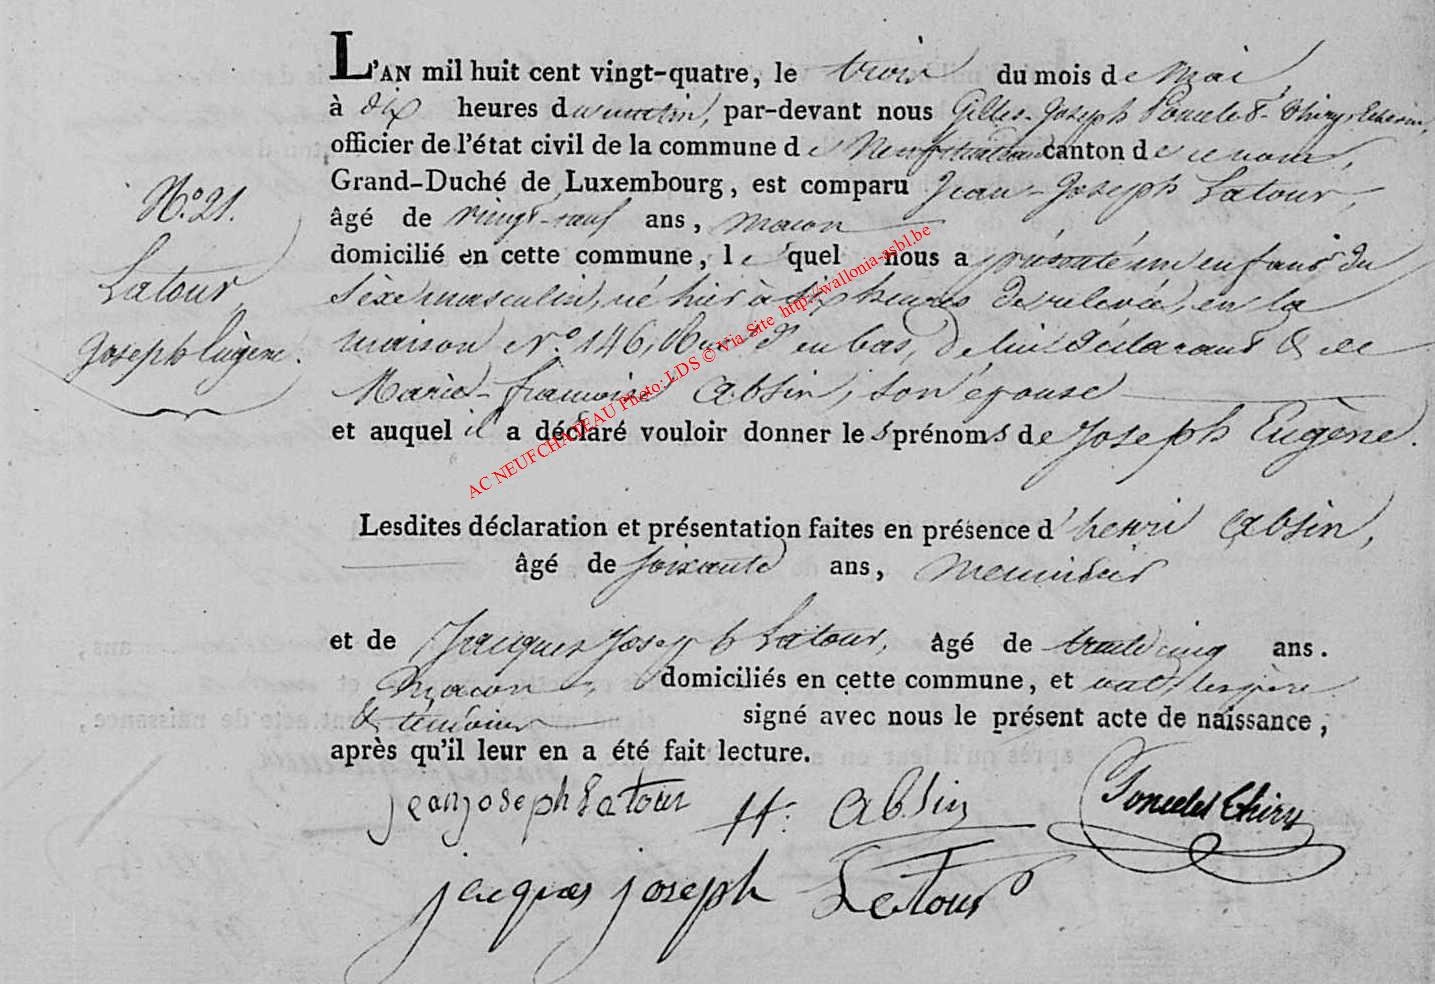 L'AN mil huit cent vingt-quatre, le trois du mois de Mai,
à dix heures du matin, par-devant nous Gilles-Joseph Poncelet-Thiry, Echevin,
officier de l'état civil de la commune de Neufchateau canton de ce nom,
Grand-Duché de Luxembourg, est comparu Jean-Joseph Latour,
âgé de vingt-neuf ans, macon
domicilié en cette commune, le quel nous a présenté un enfant du
Sèxe masculin, né hier à six heures de relevée, en la
maison N.º 146, Rue d'en bas, de lui déclarant & de
Marie-françoise Absin, son épouse
et auquel il a déclaré vouloir donner les prénoms de Joseph Eugène.
N.º 21.
Latour,
Joseph Eugène.
Lesdites déclaration et présentation faites en présence d'henri Absin,
âgé de soixante ans, Menuisier
et de Jacques Joseph Latour, âgé de trente cinq ans.
Macon, domiciliés en cette commune, et ont, les père
& témoins signé avec nous le présent acte de naissance,
après qu'il leur en a été fait lecture.
jean joseph Latour H: Absin Poncelet Thiry
jacques joseph Latour
AC NEUFCHATEAU Photo: LDS © Via Site http://wallonia-asbl.be